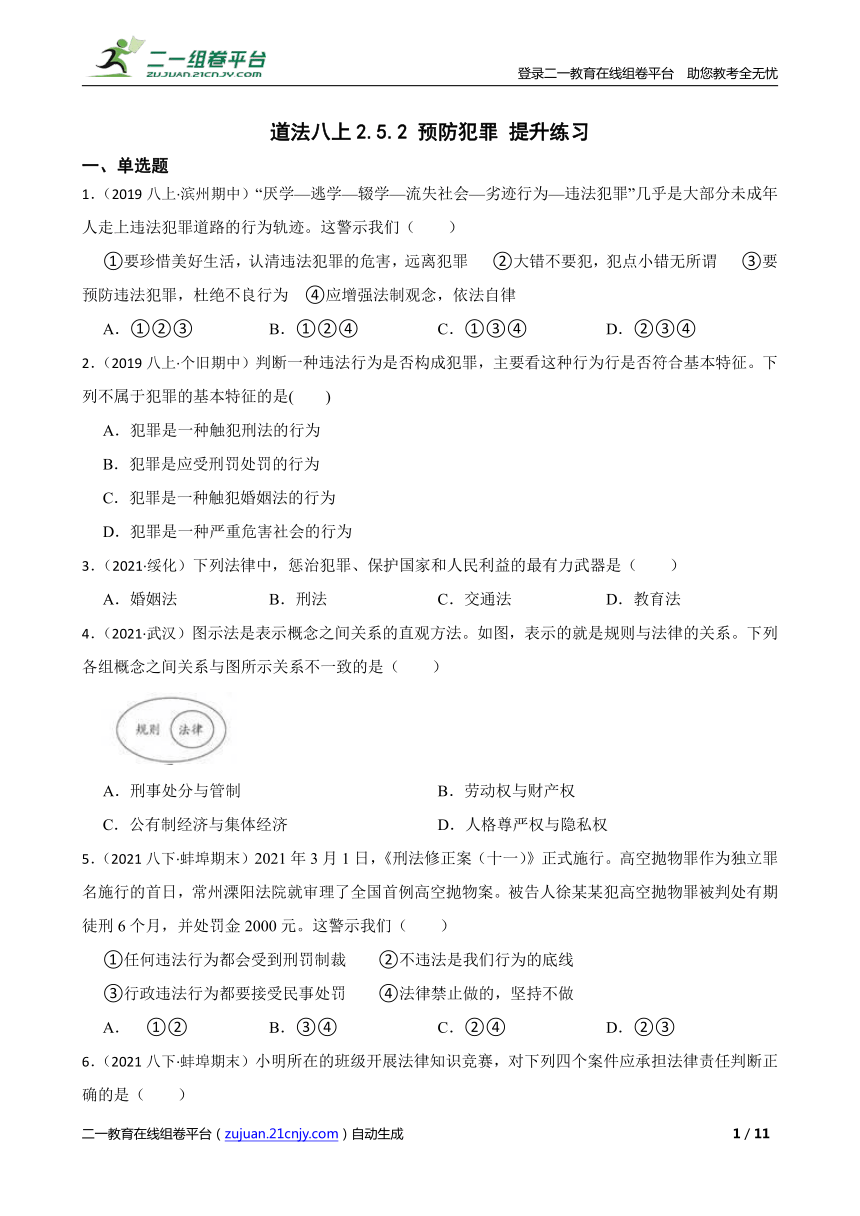 二一组卷平台
ZUJUAN.21CNJY.COM
登录二一教育在线组卷平台 助您教考全无忧
道法八上2.5.2 预防犯罪 提升练习
一、单选题
1.(2019八上·滨州期中)“厌学—逃学—辍学—流失社会—劣迹行为—违法犯罪”几乎是大部分未成年
人走上违法犯罪道路的行为轨迹。这警示我们( )
①要珍惜美好生活,认清违法犯罪的危害,远离犯罪 ②大错不要犯,犯点小错无所谓 ③要
预防违法犯罪,杜绝不良行为 ④应增强法制观念,依法自律
A.①②③ B.①②④ C.①③④ D.②③④
2.(2019八上·个旧期中)判断一种违法行为是否构成犯罪,主要看这种行为行是否符合基本特征。下
列不属于犯罪的基本特征的是( )
A.犯罪是一种触犯刑法的行为
B.犯罪是应受刑罚处罚的行为
C.犯罪是一种触犯婚姻法的行为
D.犯罪是一种严重危害社会的行为
3.(2021·绥化)下列法律中,惩治犯罪、保护国家和人民利益的最有力武器是( )
A.婚姻法 B.刑法 C.交通法 D.教育法
4.(2021·武汉)图示法是表示概念之间关系的直观方法。如图,表示的就是规则与法律的关系。下列
各组概念之间关系与图所示关系不一致的是( )
规则 法律
A.刑事处分与管制 B.劳动权与财产权
C.公有制经济与集体经济 D.人格尊严权与隐私权
5.(2021八下·蚌埠期末)2021年3月1日,《刑法修正案(十一)》正式施行。高空抛物罪作为独立罪
名施行的首日,常州溧阳法院就审理了全国首例高空抛物案。被告人徐某某犯高空抛物罪被判处有期
徒刑6个月,并处罚金2000元。这警示我们( )
①任何违法行为都会受到刑罚制裁 ②不违法是我们行为的底线
③行政违法行为都要接受民事处罚 ④法律禁止做的,坚持不做
A. ①② B.③④ C.②④ D.②③
6.(2021八下·蚌埠期末)小明所在的班级开展法律知识竞赛,对下列四个案件应承担法律责任判断正
确的是( )
二一教育在线组卷平台(zujuan.21cnjy.com)自动生成 1 / 11